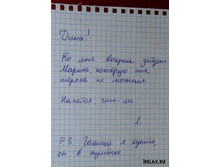 Дима!
Ко мне вечером зайдет
Марина, которую ты
терпеть не можешь.
Напейся, что-ли
Л.
P.S. Гашиш я купила,
он в тумбочке
IRELAX.RU